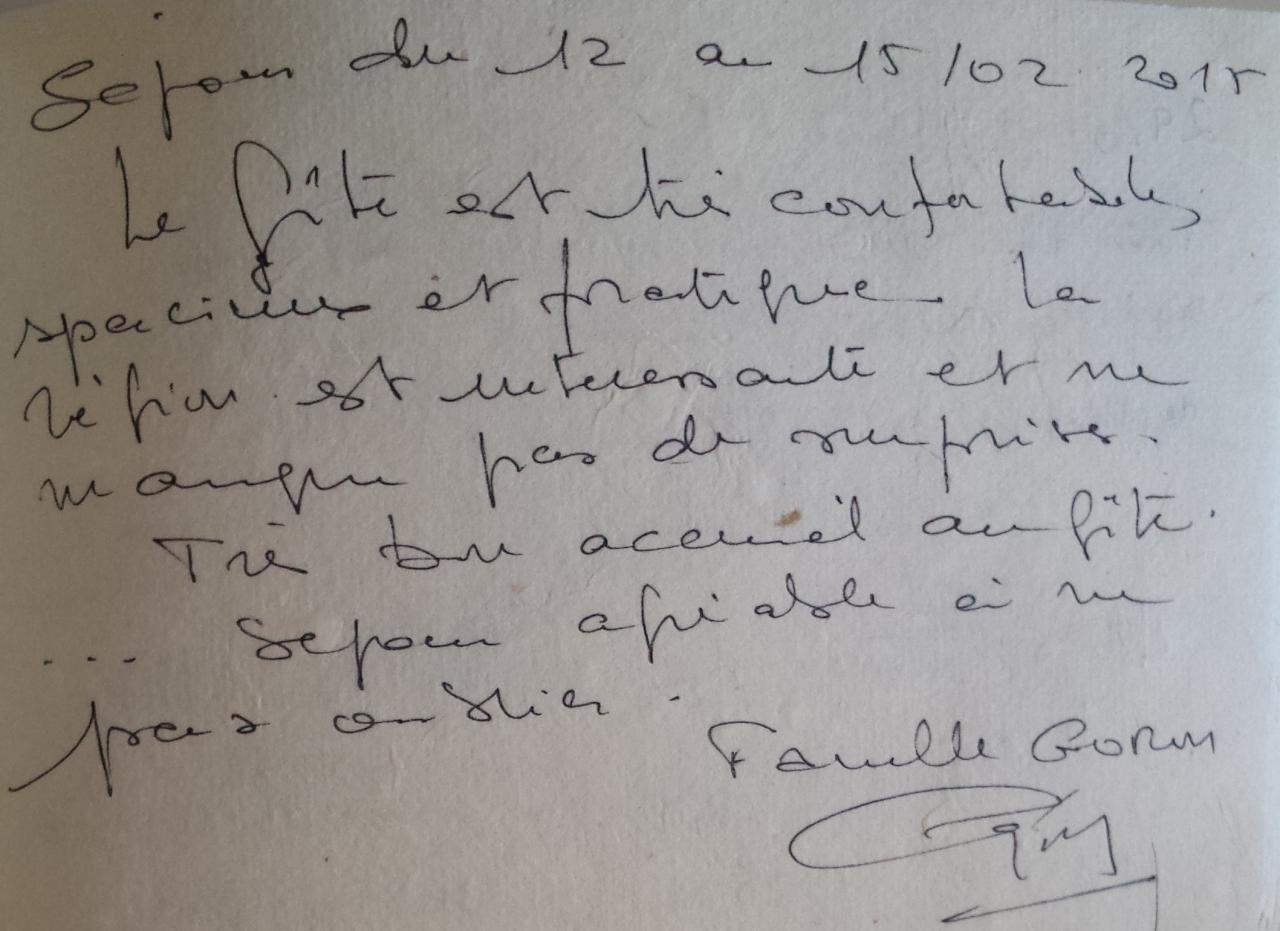 Séjour du 12 au 15/02 2015
Le gîte est très confortable,
spacieux et pratique. La
région est intéressante et ne
manque pas de surprises.
Très bon accueil au gîte.
... Séjour agréable à ne
pas oublier.
Famille GORIN